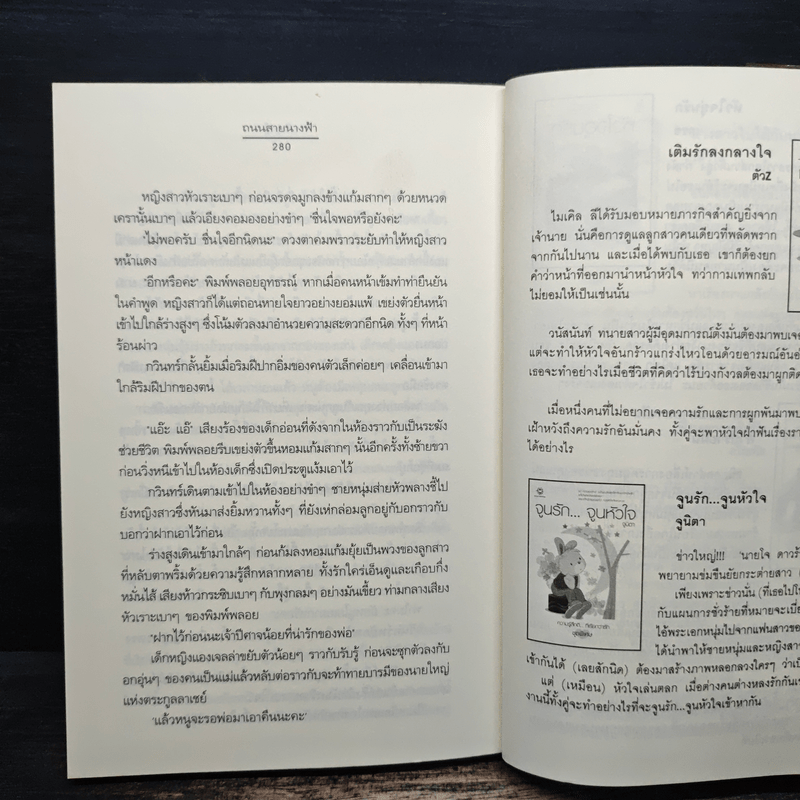 ถนนสายนางฟ้า
280
หญิงสาวหัวเราะเบาๆ ก่อนจรดจมูกลงข้างแก้มสากๆ ด้วยหนวด
เครานั้นเบาๆ แล้วเอียงคอมองอย่างขำๆ "ชื่นใจพอหรือยังคะ"
"ไม่พอครับ ชื่นใจอีกนิดนะ" ดวงตาคมพราวระยับทำให้หญิงสาว
หน้าแดง
"อีกหรือคะ" พิมพ์พลอยอุทธรณ์ หากเมื่อคนหน้าเข้มทำท่ายืนยัน
ในคำพูด หญิงสาวก็ได้แต่ถอนหายใจยาวอย่างยอมแพ้ เขย่งตัวยื่นหน้า
เข้าไปใกล้ร่างสูงๆ ซึ่งโน้มตัวลงมาอำนวยความสะดวกอีกนิด ทั้งๆ ที่หน้า
ร้อนผ่าว
กวินทร์กลั้นยิ้มเมื่อริมฝีปากอิ่มของคนตัวเล็กค่อยๆ เคลื่อนเข้ามา
ใกล้ริมฝีปากของตน
"แอ๊ะ แอ๊" เสียงร้องของเด็กอ่อนที่ดังจากในห้องราวกับเป็นระฆัง
ช่วยชีวิต พิมพ์พลอยรีบเขย่งตัวขึ้นหอมแก้มสากๆ นั้นอีกครั้งทั้งซ้ายขวา
ก่อนวิ่งหนีเข้าไปในห้องเด็กซึ่งเปิดประตูแง้มเอาไว้
กวินทร์เดินตามเข้าไปในห้องอย่างขำๆ ชายหนุ่มส่ายหัวพลางชี้ไป
ยังหญิงสาวซึ่งหันมาส่งยิ้มหวานทั้งๆ ที่ยังเห่กล่อมลูกอยู่กับอกราวกับ
บอกว่าฝากเอาไว้ก่อน
ร่างสูงเดินเข้ามาใกล้ๆ ก่อนก้มลงหอมแก้มยุ้ยเป็นพวงของลูกสาว
ที่หลับตาพริ้มด้วยความรู้สึกหลากหลาย ทั้งรักใคร่เอ็นดูและเกือบกึ่ง
หมั่นไส้ เสียงห้าวกระซิบเบาๆ กับพุงกลมๆ อย่างมันเขี้ยว ท่ามกลางเสียง
หัวเราะเบาๆ ของพิมพ์พลอย
"ฝากไว้ก่อนนะเจ้าปีศาจน้อยที่น่ารักของพ่อ"
เด็กหญิงแองเจลล่าขยับตัวน้อยๆ ราวกับรับรู้ ก่อนจะซุกตัวลงกับ
อกอุ่นๆ ของคนเป็นแม่แล้วหลับต่อราวกับจะท้าทายบารมีของนายใหญ่
แห่งตระกูลลาเชย์
'แล้วหนูจะรอพ่อมาเอาคืนนะคะ'
เติมรักลงกลางใจ
ตัวz
ไมเคิล ลีได้รับมอบหมายภารกิจสำคัญยิ่งจาก
เจ้านาย นั่นคือการดูแลลูกสาวคนเดียวที่พลัดพราก
จากกันไปนาน และเมื่อได้พบกับเธอ เขาก็ต้องยก
คำว่าหน้าที่ออกมานำหน้าหัวใจ ทว่ากามเทพกลับ
ไม่ยอมให้เป็นเช่นนั้น
วนัสนันท์ ทนายสาวผู้มีอุดมการณ์ตั้งมั่นต้องมาพบเจอ
แต่จะทำให้หัวใจอันกร้าวแกร่งไหวโอนด้วยอารมณ์อันอ่
เธอจะทำอย่างไรเมื่อชีวิตที่คิดว่าไร้บ่วงกังวลต้องมาผูกติด
เมื่อหนึ่งคนที่ไม่อยากเจอความรักและการผูกพันมาพบ
เฝ้าหวังถึงความรักอันมั่นคง ทั้งคู่จะพาหัวใจฝ่าฟันเรื่องรา
ได้อย่างไร
จูนรัก... จูนหัวใจ
จูนิตา
จูนรัก...จูนหัวใจ
จูนิตา
ข่าวใหญ่!!! นายโจ ดาวร้
พยายามข่มขืนยัยกระต่ายสาว (
เพียงเพราะข่าวนั่น (ที่เธอไปให
กับแผนการชั่วร้ายที่หมายจะเบี่ย
ไอ้พระเอกหนุ่มไปจากแฟนสาวขอ
ได้นำพาให้ชายหนุ่มและหญิงสาว
เข้ากันได้ (เลยสักนิด) ต้องมาสร้างภาพหลอกลวงใครๆ ว่าเป็
แต่ (เหมือน) หัวใจเล่นตลก เมื่อต่างคนต่างหลงรักกันเข้
งานนี้ทั้งคู่จะทำอย่างไรที่จะจูนรัก...จูนหัวใจเข้าหากัน